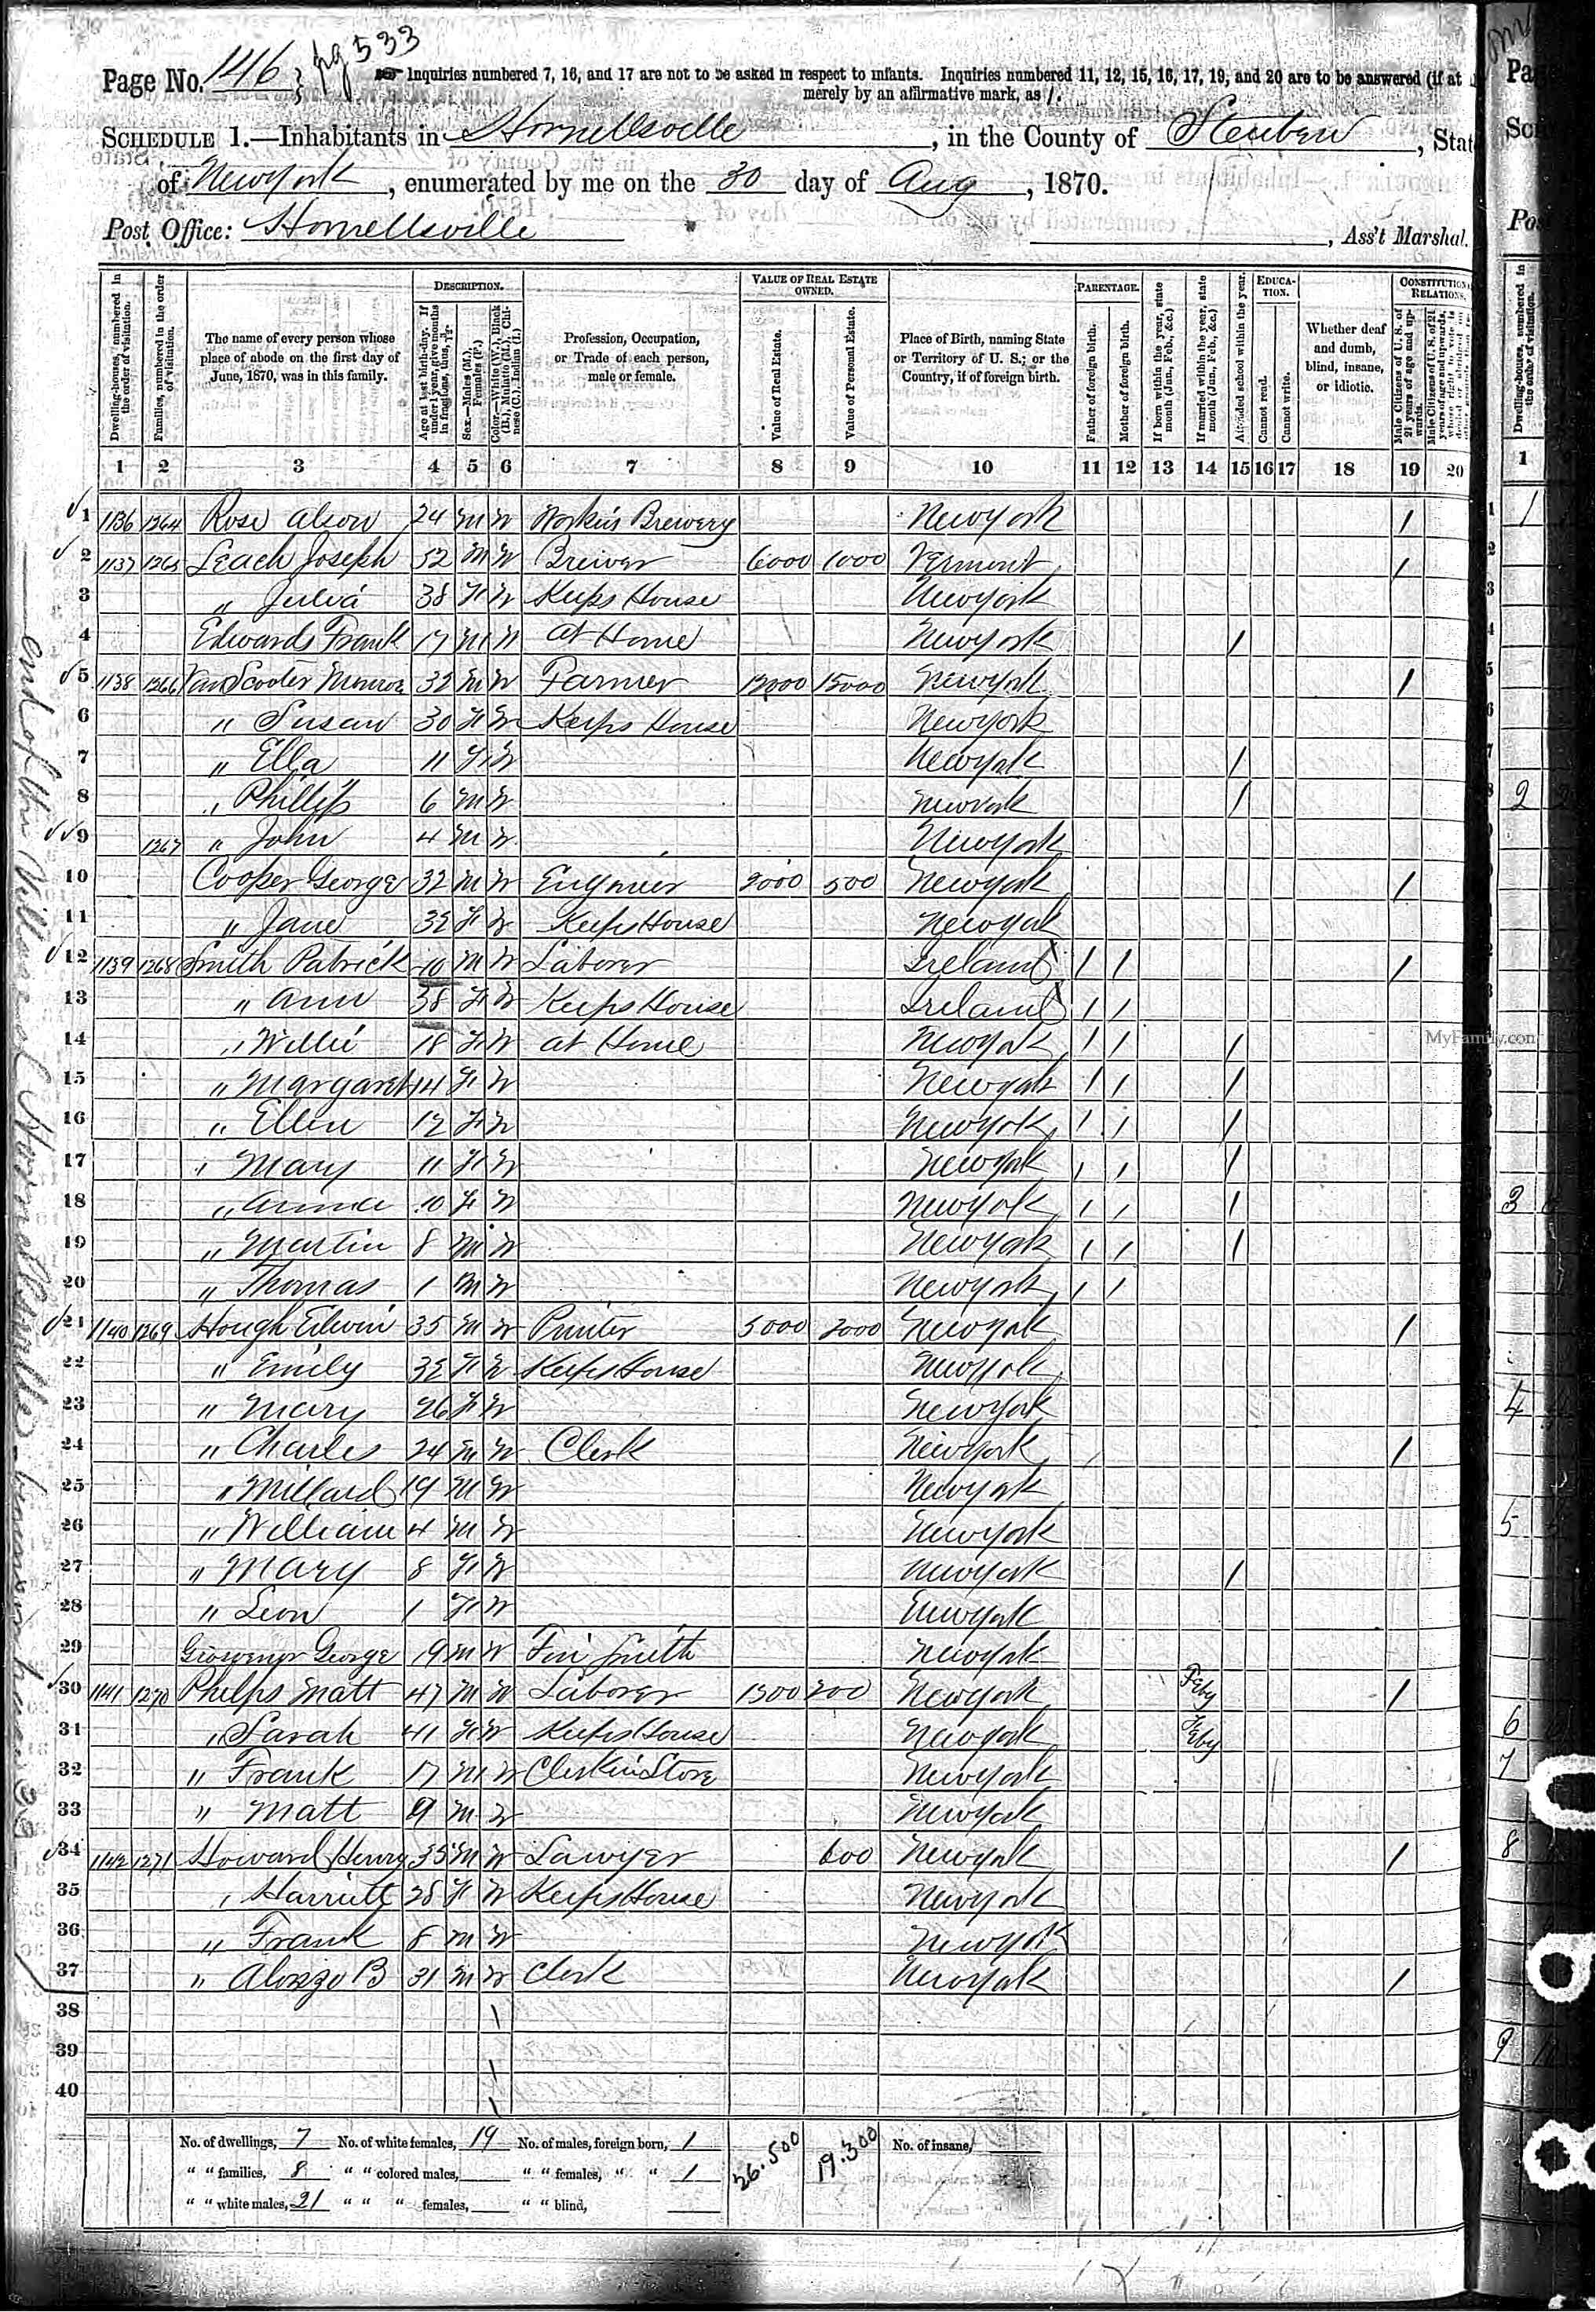 Page No. 146; pg 533
Inquiries numbered 7, 16, and 17 are not to be asked in respect to infants. Inquiries numbered 11, 12, 15, 16, 17, 19, and 20 are to be answered (if at
merely by an affirmative mark, as /.
SCHEDULE 1.—Inhabitants in Hornellsville, in the County of Steuben, State
of New York, enumerated by me on the 30 day of Aug, 1870.
Post Office: Hornellsville
, Ass't Marshal.
Dwelling-houses, numbered in the order of visitation.
Families, numbered in the order of visitation.
The name of every person whose place of abode on the first day of June, 1870, was in this family.
DESCRIPTION.
Age at last birth-day. If under 1 year, give months in fractions, thus, 3/12.
Sex.—Males (M.), Females (F.)
Color.—White (W.), Black (B.), Mulatto (M.), Chinese (C.), Indian (I.)
Profession, Occupation, or Trade of each person, male or female.
VALUE OF REAL ESTATE OWNED.
Value of Real Estate.
Value of Personal Estate.
Place of Birth, naming State or Territory of U. S.; or the Country, if of foreign birth.
PARENTAGE.
Father of foreign birth.
Mother of foreign birth.
If born within the year, state month (Jan., Feb., &c.)
If married within the year, state month (Jan., Feb., &c.)
Attended school within the year.
EDUCATION.
Cannot read.
Cannot write.
Whether deaf and dumb, blind, insane, or idiotic.
CONSTITUTIONAL RELATIONS.
Male Citizens of U. S. of 21 years of age and upwards.
1 2 3 4 5 6 7 8 9 10 11 12 13 14 15 16 17 18 19 20
1 1136 1264 Rose Alson 24 M W Works in Brewery New York /
2 1137 1265 Leach Joseph 52 M W Brewer 6000 1000 Vermont /
3 " Julia 38 F W Keeps House New York
4 Edwards Frank 17 M W At Home New York /
5 1138 1266 Van Scooter Munroe 32 M W Farmer 12000 15000 New York /
6 " Susan 30 F W Keeps House New York
7 " Ella 11 F W New York /
8 " Phillip 6 M W New York /
9 1267 " John 4 M W New York
10 Cooper George 32 M W Engineer 2000 500 New York /
11 " Jane 32 F W Keeps House New York
12 1139 1268 Smith Patrick 40 M W Laborer Ireland / / /
13 " Ann 38 F W Keeps House Ireland / /
14 " Willie 18 F W At Home New York / / /
15 " Margaret 14 F W New York / / /
16 " Ellen 12 F W New York / / /
17 " Mary 11 F W New York / / /
18 " Anna 10 F W New York / / /
19 " Martin 8 M W New York / / /
20 " Thomas 1 M W New York / /
21 1140 1269 Hough Edwin 35 M W Printer 5000 2000 New York /
22 " Emily 32 F W Keeps House New York
23 " Mary 26 F W New York
24 " Charles 24 M W Clerk New York /
25 " Millard 19 M W New York
26 " William 4 M W New York
27 " Mary 8 F W New York /
28 " Leon 1 F W New York
29 Grosvenor George 19 M W Tin Smith New York
30 1141 1270 Phelps Matt 47 M W Laborer 1500 200 New York Feby /
31 " Sarah 41 F W Keeps House New York Feby
32 " Frank 17 M W Clerk in Store New York
33 " Matt 9 M W New York
34 1142 1271 Howard Henry 35 M W Lawyer 600 New York /
35 " Harriett 28 F W Keeps House New York
36 " Frank 8 M W New York
37 " Alonzo B 31 M W Clerk New York /
38
39
40
No. of dwellings, 7 No. of white females, 19 No. of males, foreign born, 1 26.500 19.300 No. of insane,
" " families, 8 " " colored males, " " females, " " 1
" " white males, 21 " " " females, " " blind,
end of the Village of Hornellsville
MyFamily.com